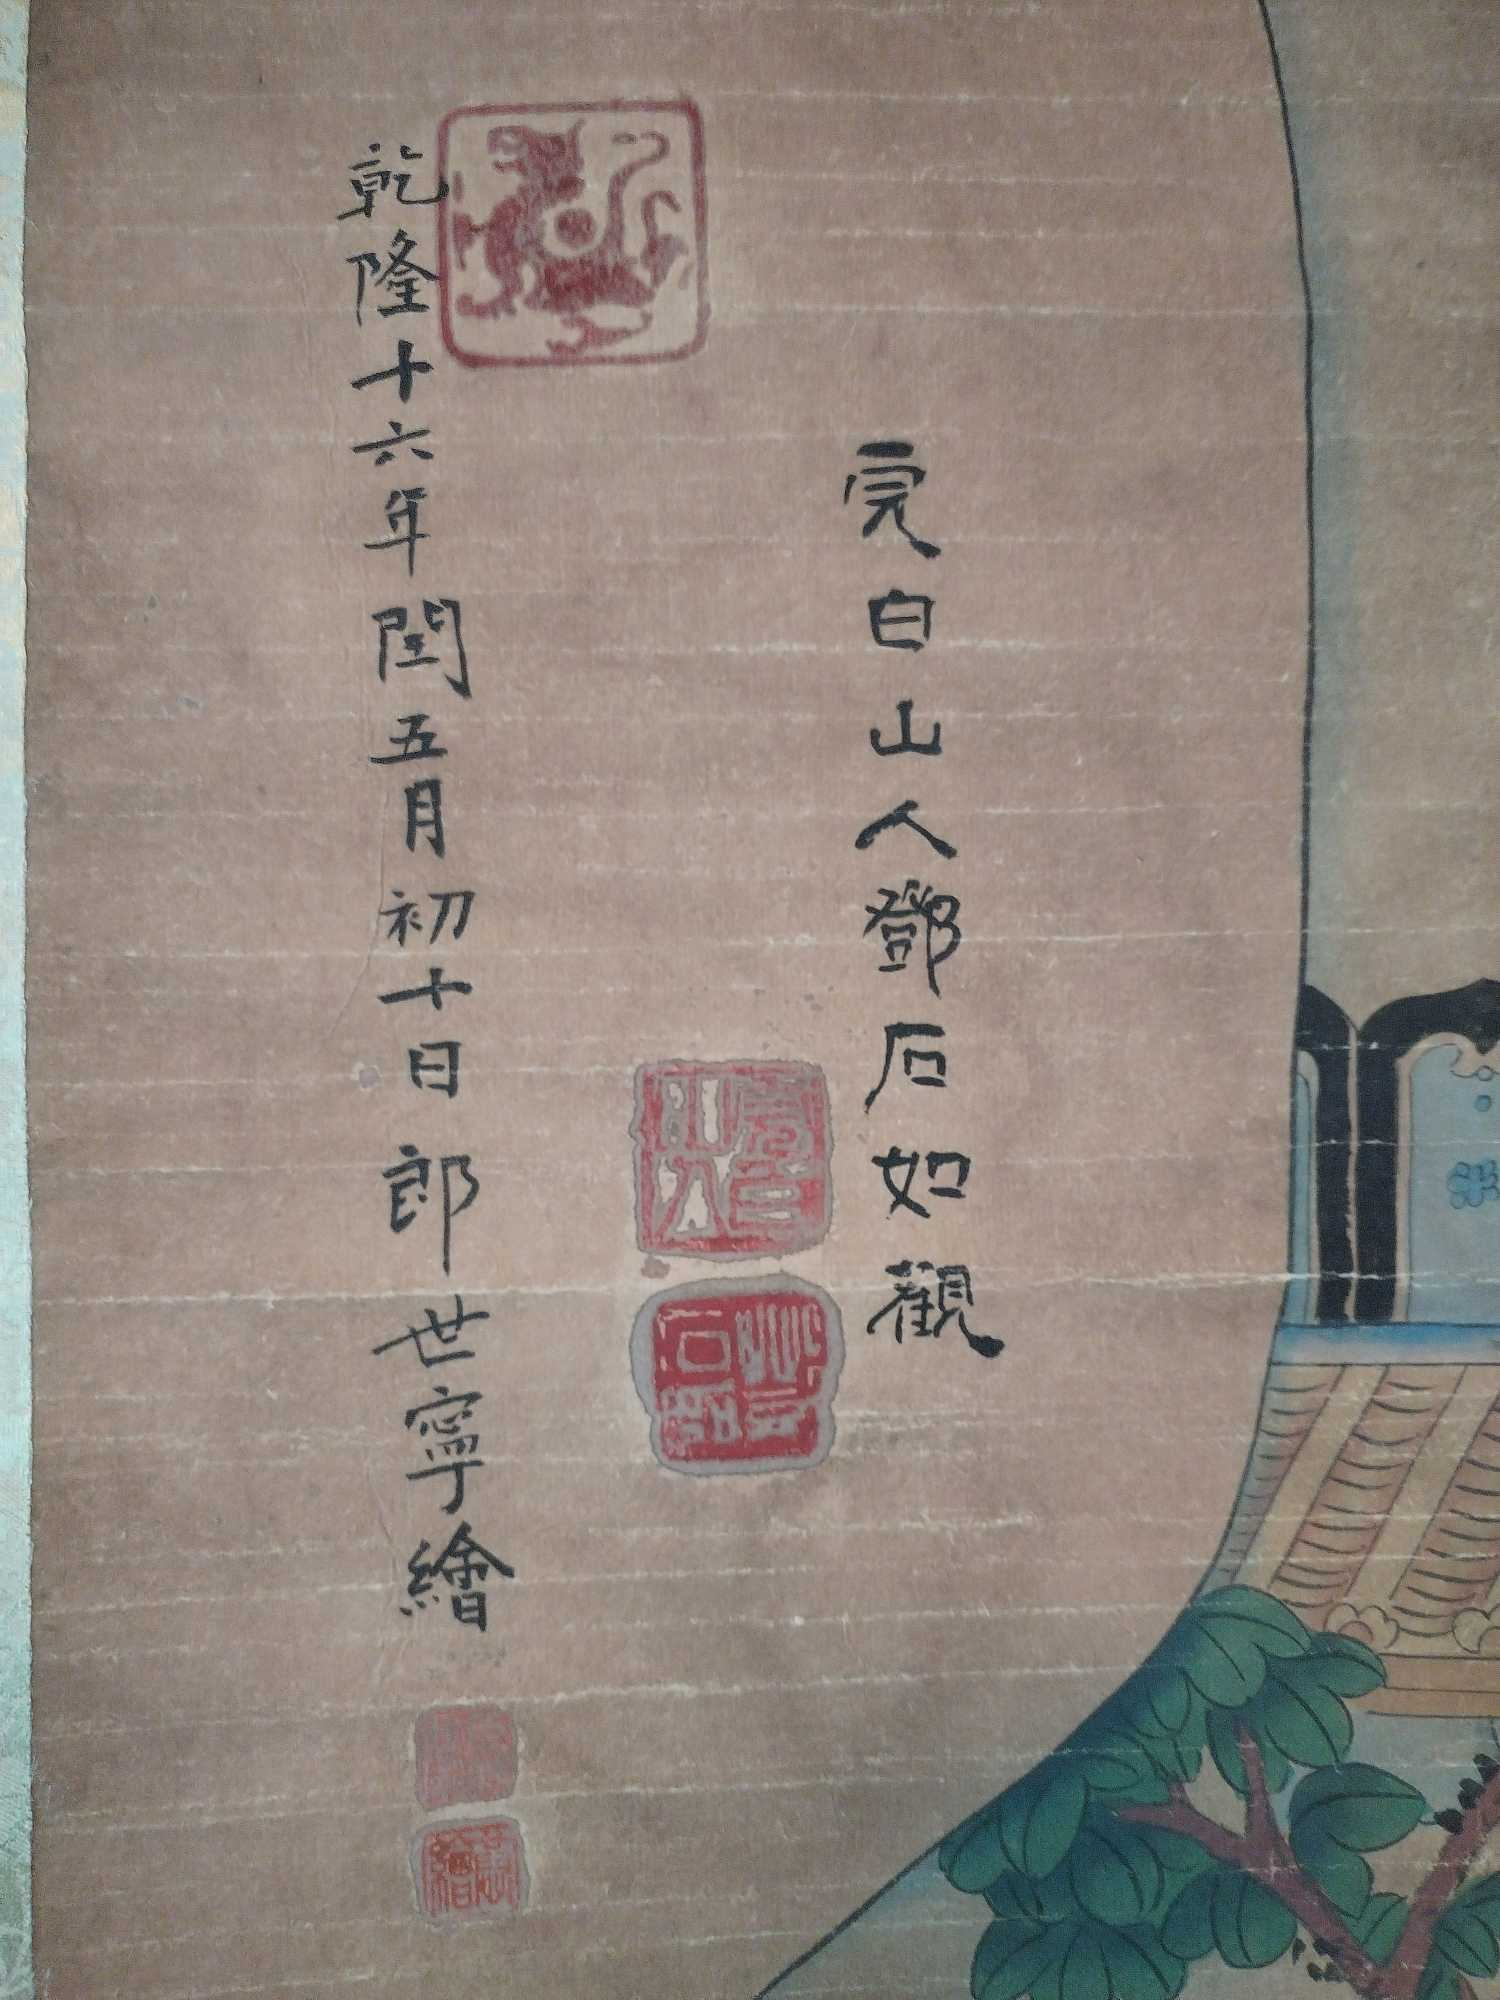 完白山人鄧石如觀
乾隆十六年閏五月初十日郎世寧繪